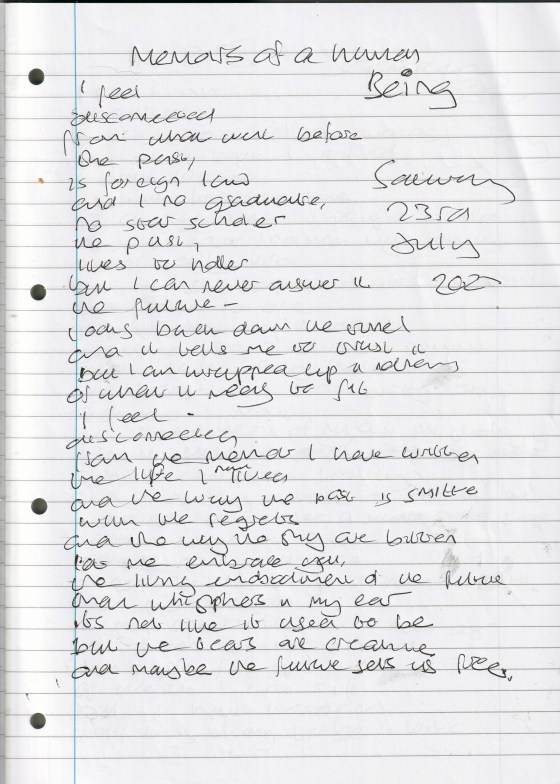 Memoirs of a human
Being
I feel
disconnected
from what went before
the past,
is foreign land
and I no graduate,
no star scholar
the past,
likes to
but I can never answer it
the future –
looks back down the tunnel
and it tells me to trust it
but I am wrapped up in
of what it really to
I feel
disconnected
from the memoir I have written
the life I never lived
and the way the past is smitten
with the regrets
and the way the are bitten
let me embrace you,
the living embodiment of the future
that whispers in my ear
its not like it used to be
but the are
and maybe the future sets us free.
Saturday
23rd
July